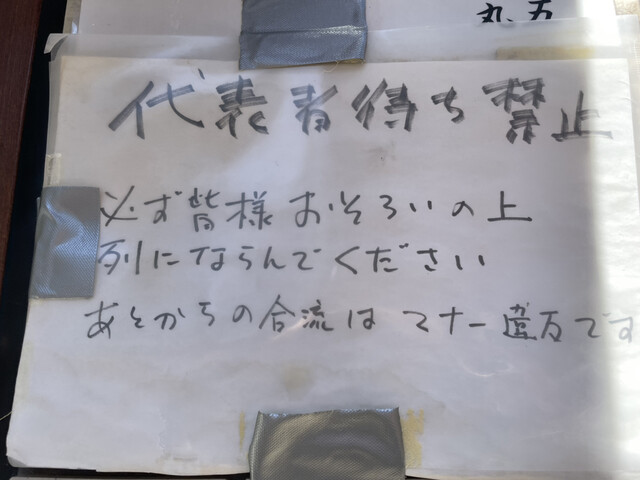 丸、万
代表者待ち禁止
必ず皆様おそろいの上
列にならんでください
あとからの合流はマナー違反です